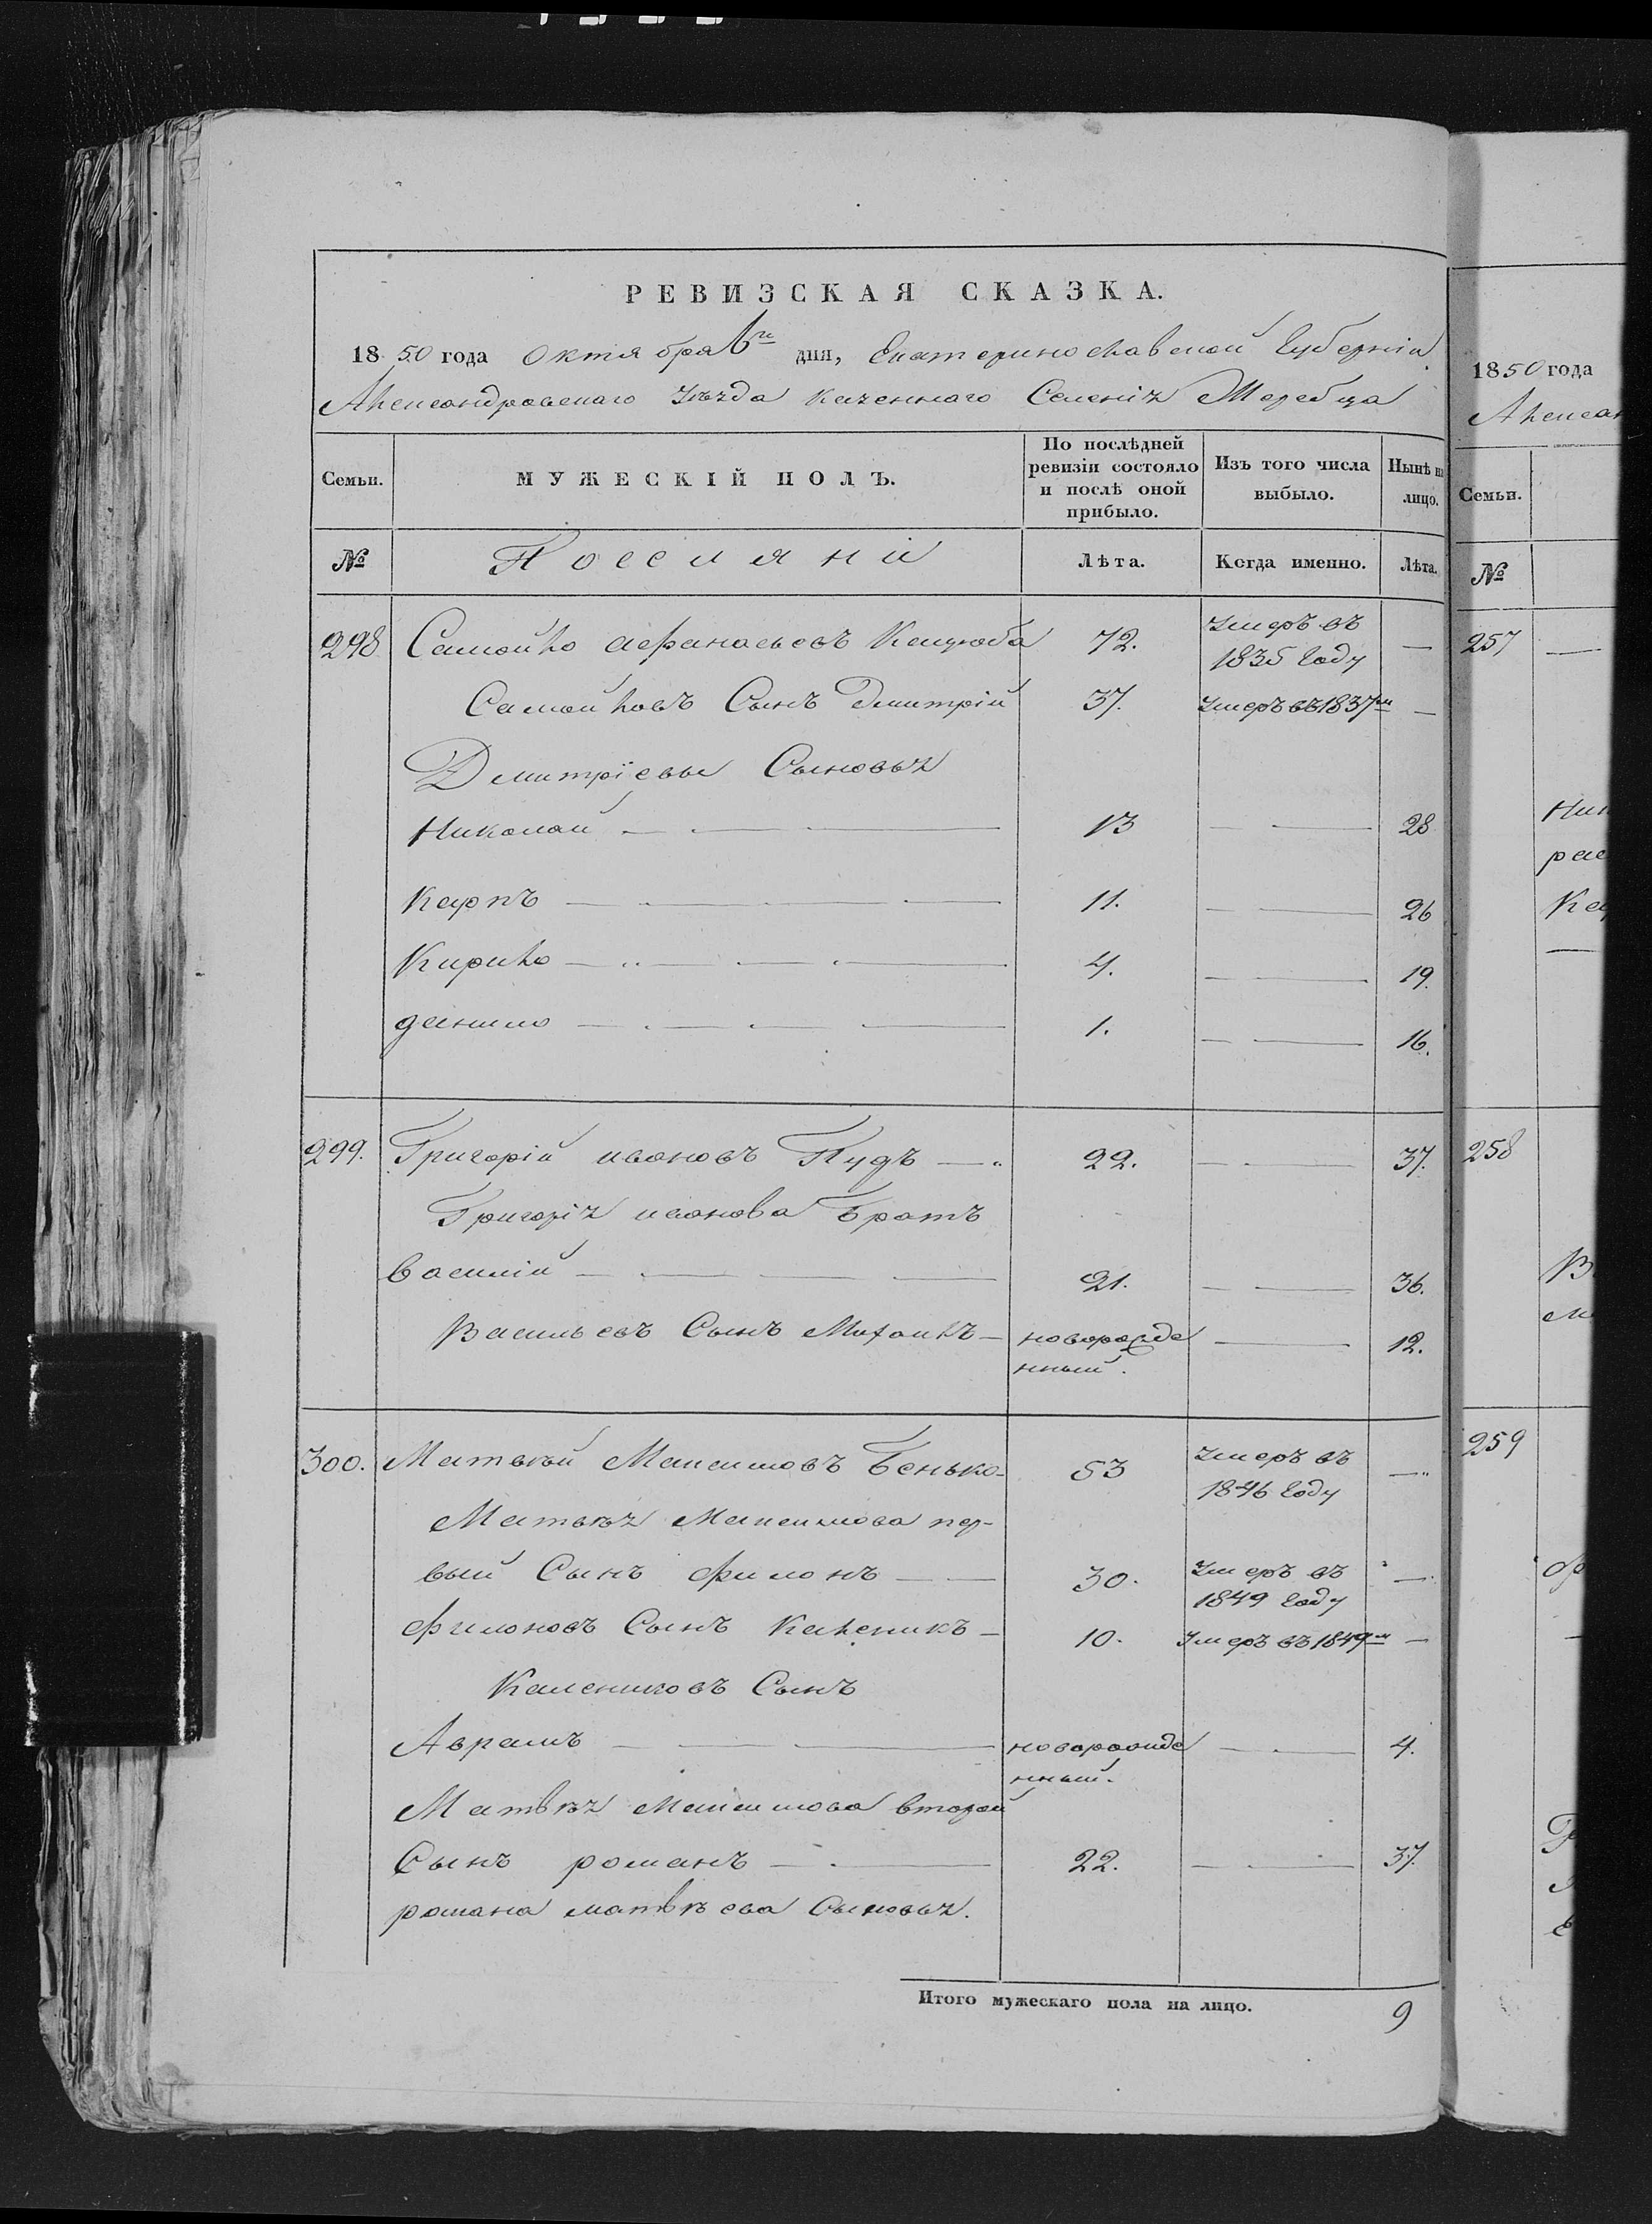 РЕВИЗСКАЯ СКАЗКА.
1850 года Октября 6го дня, Екатеринославской Губерніи
Александровскаго Уѣзда казеннаго Селенія Жеребца
Семьи. МУЖЕСКІЙ ПОЛЪ. По послѣдней ревизіи состояло и послѣ оной прибыло. Изъ того числа выбыло. Нынѣ на лицо.
№ Поселяни Лѣта. Когда именно. Лѣта.
298 Самойло Афанасьевъ Кацюба 72. Умеръ въ 1835 Году —
Самойловъ Сынъ Дмитрій 37. Умеръ въ 1837м —
Дмитріевы Сыновья
Николай — 13 — 28
Карпъ — 11. — 26
Кирило — 4. — 19.
данило — 1. — 16.
299. Григорій ивановъ Пудъ — 22. — 37.
Григорія иванова Братъ
Василій — 21. — 36.
Васильевъ Сынъ Михаилъ — новорожде — 12.
нный.
300. Матвѣй Максимовъ Бенько 53 Умеръ въ 1846 Году —
Матвѣя Максимова пер-
вый Сынъ Филонъ — 30. Умеръ въ 1849 Году —
Филоновъ Сынъ Каленикъ — 10. Умеръ въ 1849м —
Калениковъ Сынъ
Аврамъ — новорожде — 4.
нный.
Матвѣя Максимова второй
Сынъ романъ — 22. — 37.
романа матвѣева Сыновья.
Итого мужескаго пола на лицо. 9
1850 года
Семьи.
№
257 —
258
259